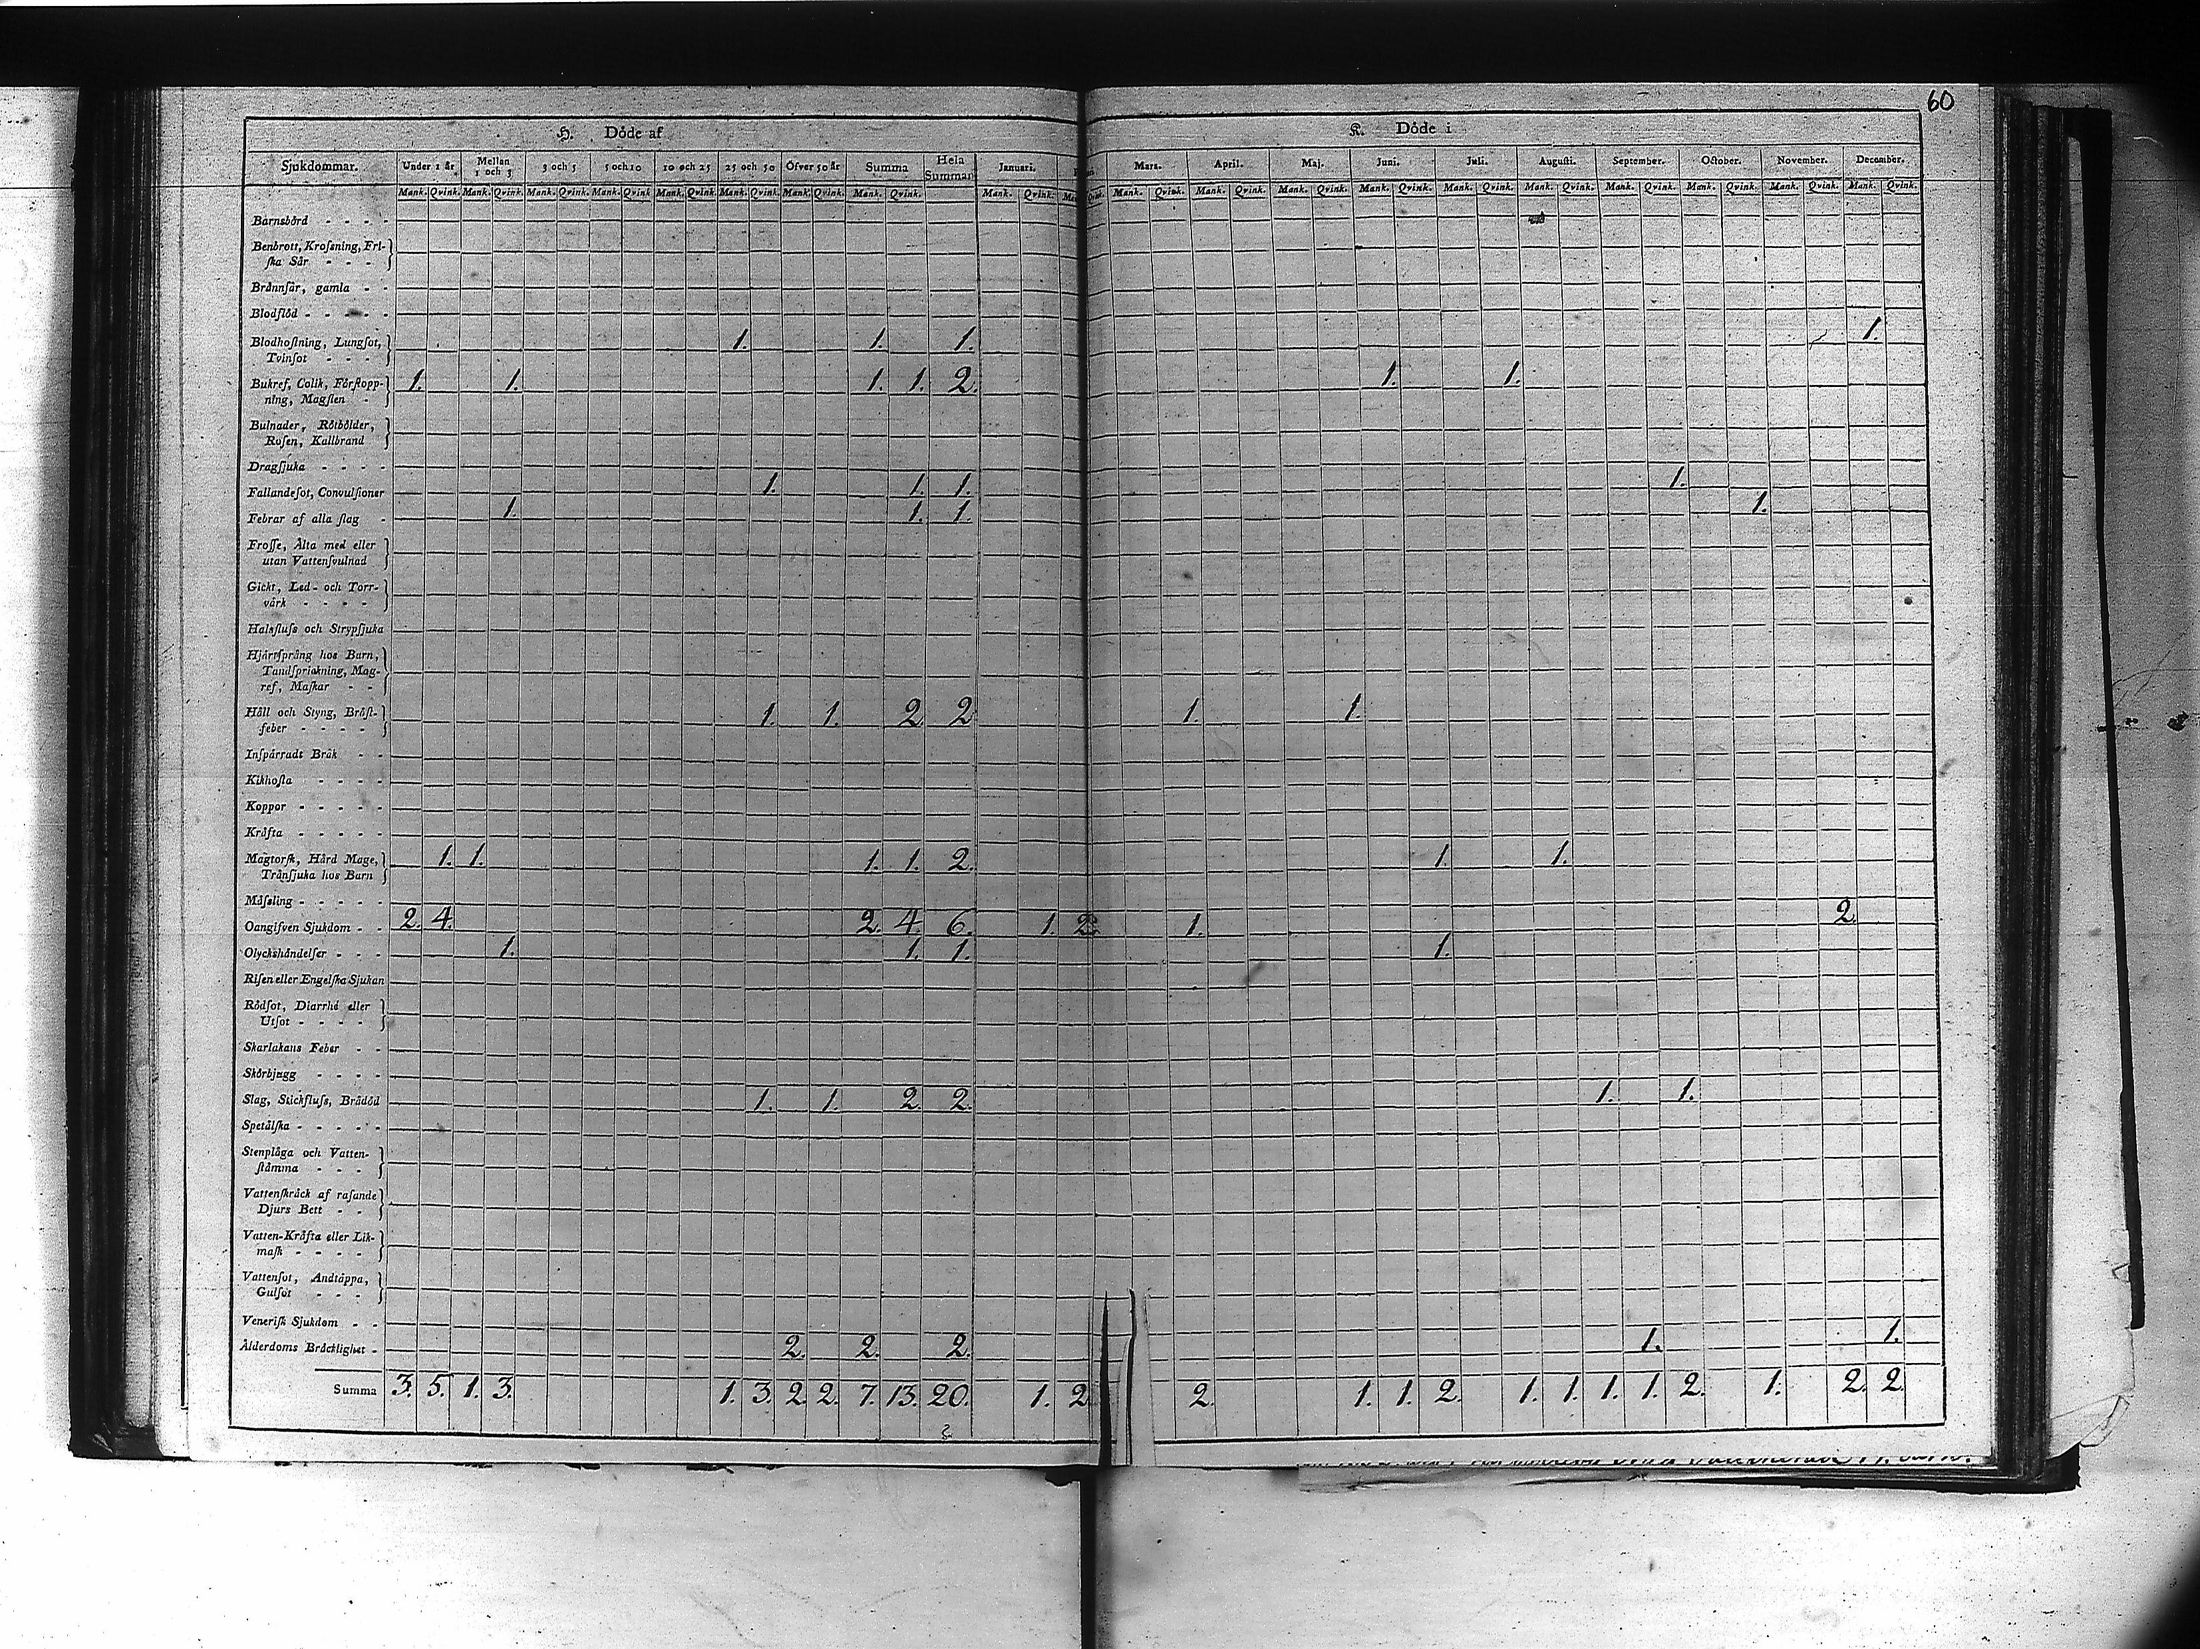 60
H. Döde af K. Döde i
Sjukdommar. Under 1 år. Mellan 1 och 3 3 och 5 5 och 10 10 och 25 25 och 50 Öfver 50 år Summa Hela Summan Januari. Mars. April. Maj. Juni. Juli. Augusti. September. October. November. December.
Mank. Qvink. Mank. Qvink. Mank. Qvink. Mank. Qvink. Mank. Qvink. Mank. Qvink. Mank. Qvink. Mank. Qvink. Mank. Qvink. Mank. Qvink. Mank. Qvink. Mank. Qvink. Mank. Qvink. Mank. Qvink. Mank. Qvink. Mank. Qvink. Mank. Qvink. Mank. Qvink. Mank. Qvink.
Barnsbörd - - - -
Benbrott, Krosning, Fri-
ska Sår - - - -
Brännsår, gamla - -
Blodflöd - - - - -
Blodhostning, Lungsot, 1. 1. 1. 1.
Tvinsot - - - -
Bukref, Colik, Förstopp- 1. 1. 1. 1. 2. 1. 1.
ning, Magsten -
Bulnader, Rötbölder,
Rosen, Kallbrand
Dragsjuka - - - -
Fallandesot, Convulsioner 1. 1. 1. 1.
Febrar af alla slag - 1. 1. 1. 1.
Frosse, Älta med eller
utan Vattensvulnad
Gickt, Led- och Torr-
värk - - - -
Halsfluss och Strypsjuka
Hjärtsprång hos Barn,
Tandsprickning, Mag-
ref, Maskar - -
Håll och Styng, Bröst- 1. 1. 2 2 1. 1.
feber - - - - -
Inspärradt Bråk - -
Kikhosta - - - -
Koppor - - - - -
Kräfta - - - - -
Magtorsk, Hård Mage, 1. 1. 1. 1. 2. 1. 1.
Trånsjuka hos Barn
Mässling - - - - -
Oangifven Sjukdom - - 2. 4. 2. 4. 6. 1. 2. 1. 2.
Olyckshändelser - - - 1. 1. 1. 1.
Risen eller Engelska Sjukan
Rödsot, Diarrhé eller
Utsot - - - -
Skarlakans Feber - -
Skörbjugg - - - -
Slag, Stickfluss, Brådöd 1. 1. 2. 2. 1. 1.
Spetälska - - - - -
Stenplåga och Vatten-
stämma - - - -
Vattenskräck af rasande
Djurs Bett - - -
Vatten-Kräfta eller Lik-
mask - - - -
Vattensot, Andtäppa,
Gulsot - - -
Venerisk Sjukdom - -
Ålderdoms Bräcklighet - 2. 2. 2. 1. 1.
Summa 3. 5. 1. 3. 1. 3. 2. 2. 7. 13. 20. 1. 2. 2. 1. 1. 2. 1. 1. 1. 1. 2. 1. 2. 2.